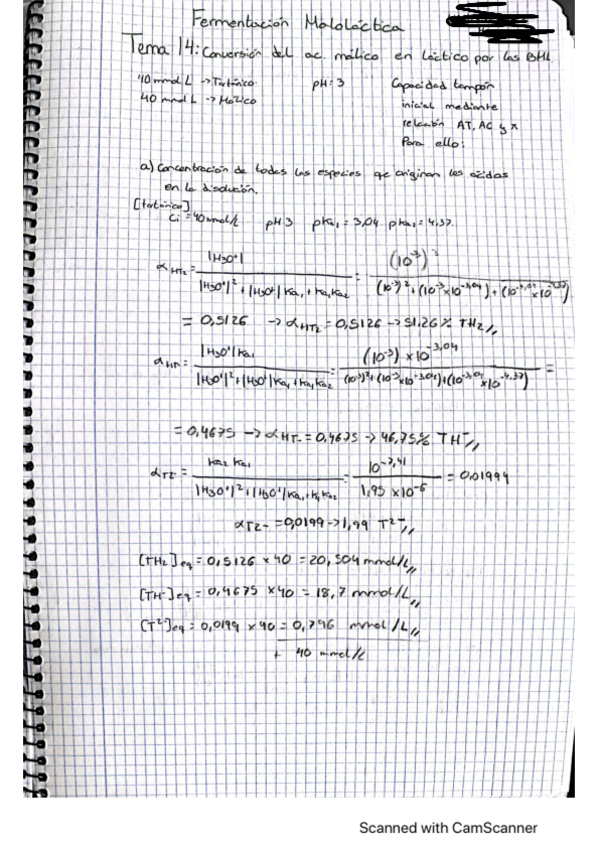 Fermentación Maloláctica
Tema 14: Conversión del ac. málico en láctico por las BML
40 mmol L → Tartárico pH: 3 Capacidad tampón
40 mmol L → Málico inicial mediante
relación AT, AC y
Para ello:
a) Concentración de todas las especies qe originan los ácidos
en la disolución.
[tartárico]
Ci = 40 mmol/L pH 3 pKa1 = 3,04 pKa2 = 4,37
α HT2 = |H3O+| / |H3O+|² + |H3O+| Ka1 + Ka1 Ka2 = (10^-3)² / (10^-3)² + (10^-3 × 10^-3,04) + (10^-3,04 × 10^-4,37)
= 0,5126 → α HT2 = 0,5126 → 51,26 % TH2 //
α HT- = |H3O+| Ka1 / |H3O+|² + |H3O+| Ka1 + Ka1 Ka2 = (10^-3) × 10^-3,04 / (10^-3)² + (10^-3 × 10^-3,04) + (10^-3,04 × 10^-4,37) =
= 0,4675 → α HT- = 0,4675 → 46,75% TH- //
α T2- = Ka2 Ka1 / |H3O+|² + |H3O+| Ka1 + K1 Ka2 = 10^-7,41 / 1,95 × 10^-6 = 0,01994
α T2- = 0,0199 → 1,99 T2- //
[TH2]eq = 0,5126 × 40 = 20,504 mmol/L //
[TH-]eq = 0,4675 × 40 = 18,7 mmol/L //
[T2-]eq = 0,0199 × 40 = 0,796 mmol/L //
+ 40 mmol/L
Scanned with CamScanner